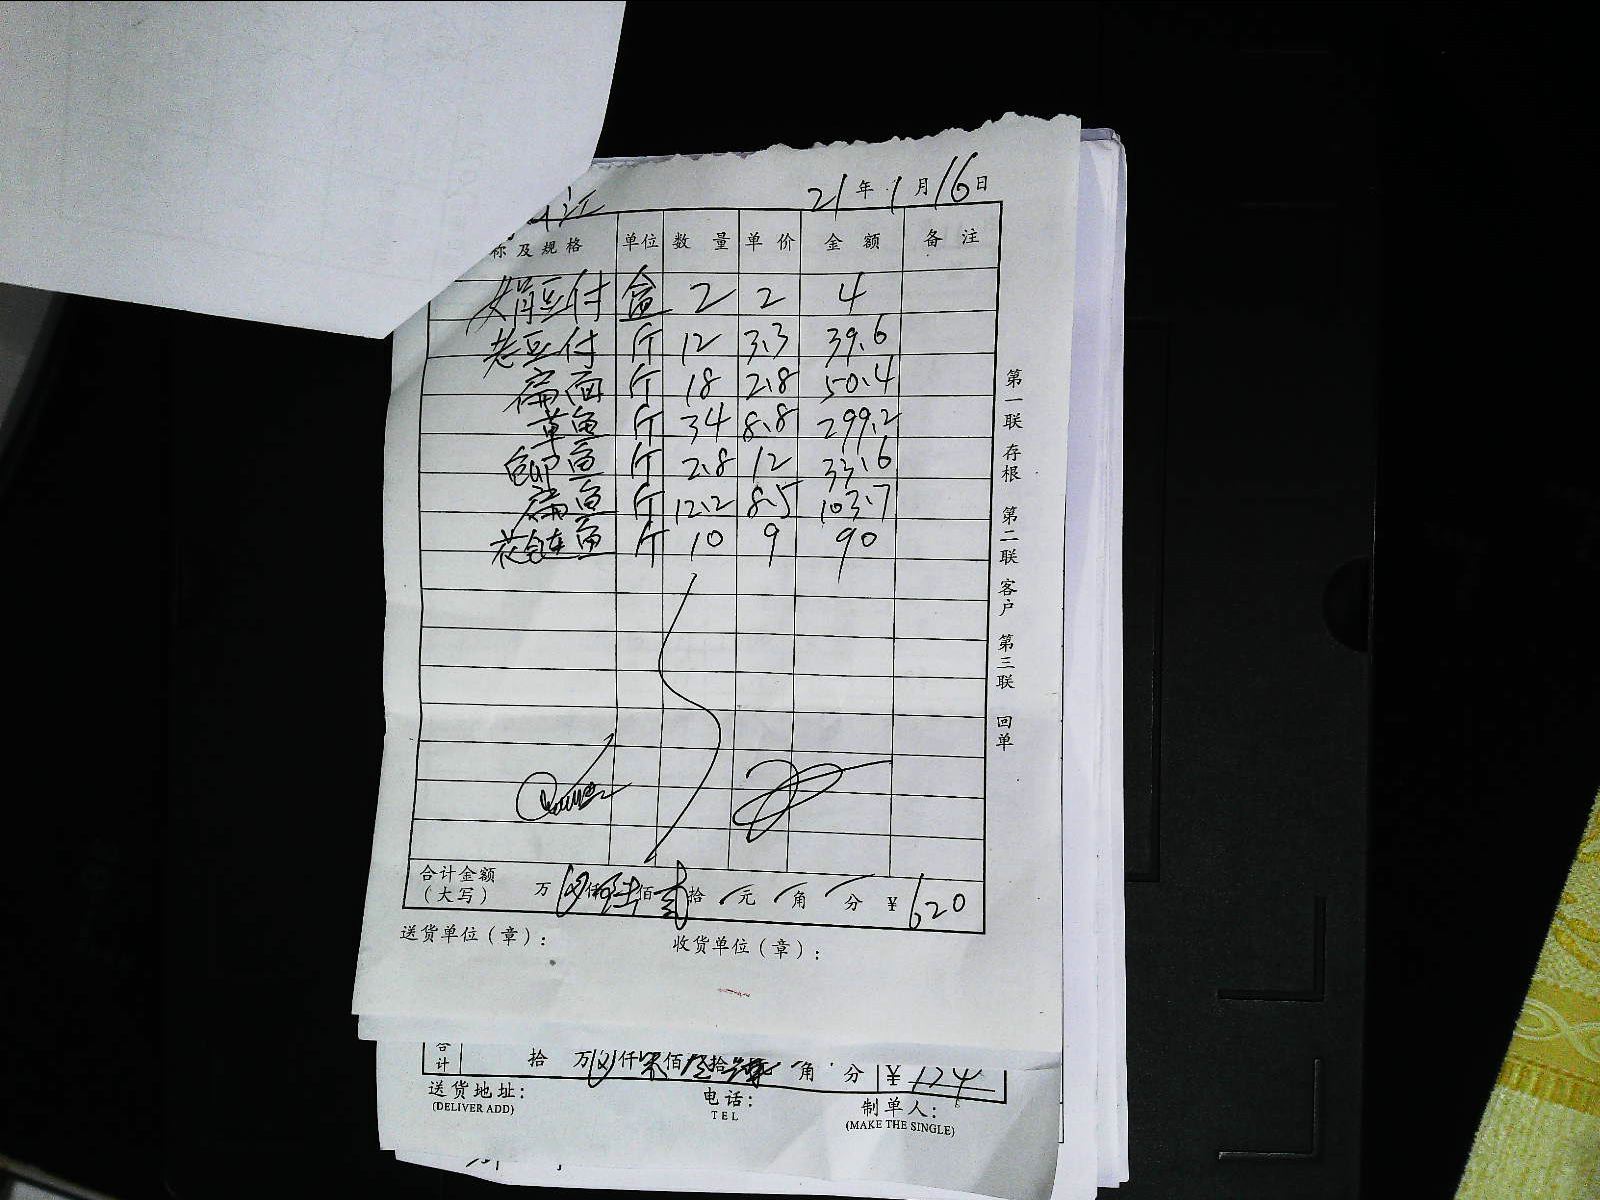 江 21年1月16日
称及规格 单位 数量 单价 金额 备注
豆付 盒 2 2 4
老豆付 斤 12 3.3 39.6
扁面 斤 18 2.8 50.4
草鱼 斤 34 8.8 299.2
鱼 斤 2.8 12 33.6
扁鱼 斤 12.2 8.5 103.7
花鲢鱼 斤 10 9 90
合计金额
(大写) 万 仟陆佰贰拾 元 角 分 ¥620
送货单位(章): 收货单位(章):
第一联 存根 第二联 客户 第三联 回单
合计 拾 万 仟 佰 拾 角 分 ¥
送货地址: 电话: 制单人:
(DELIVER ADD) TEL (MAKE THE SINGLE)